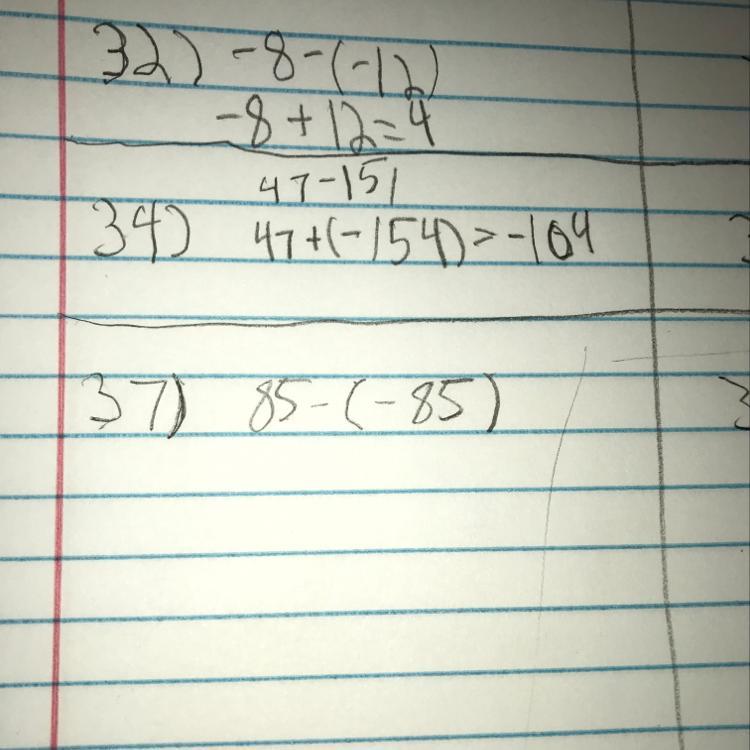 32) -8-(-12)
-8+12=4
47-151
34) 47+(-154)=-104
37) 85-(-85)